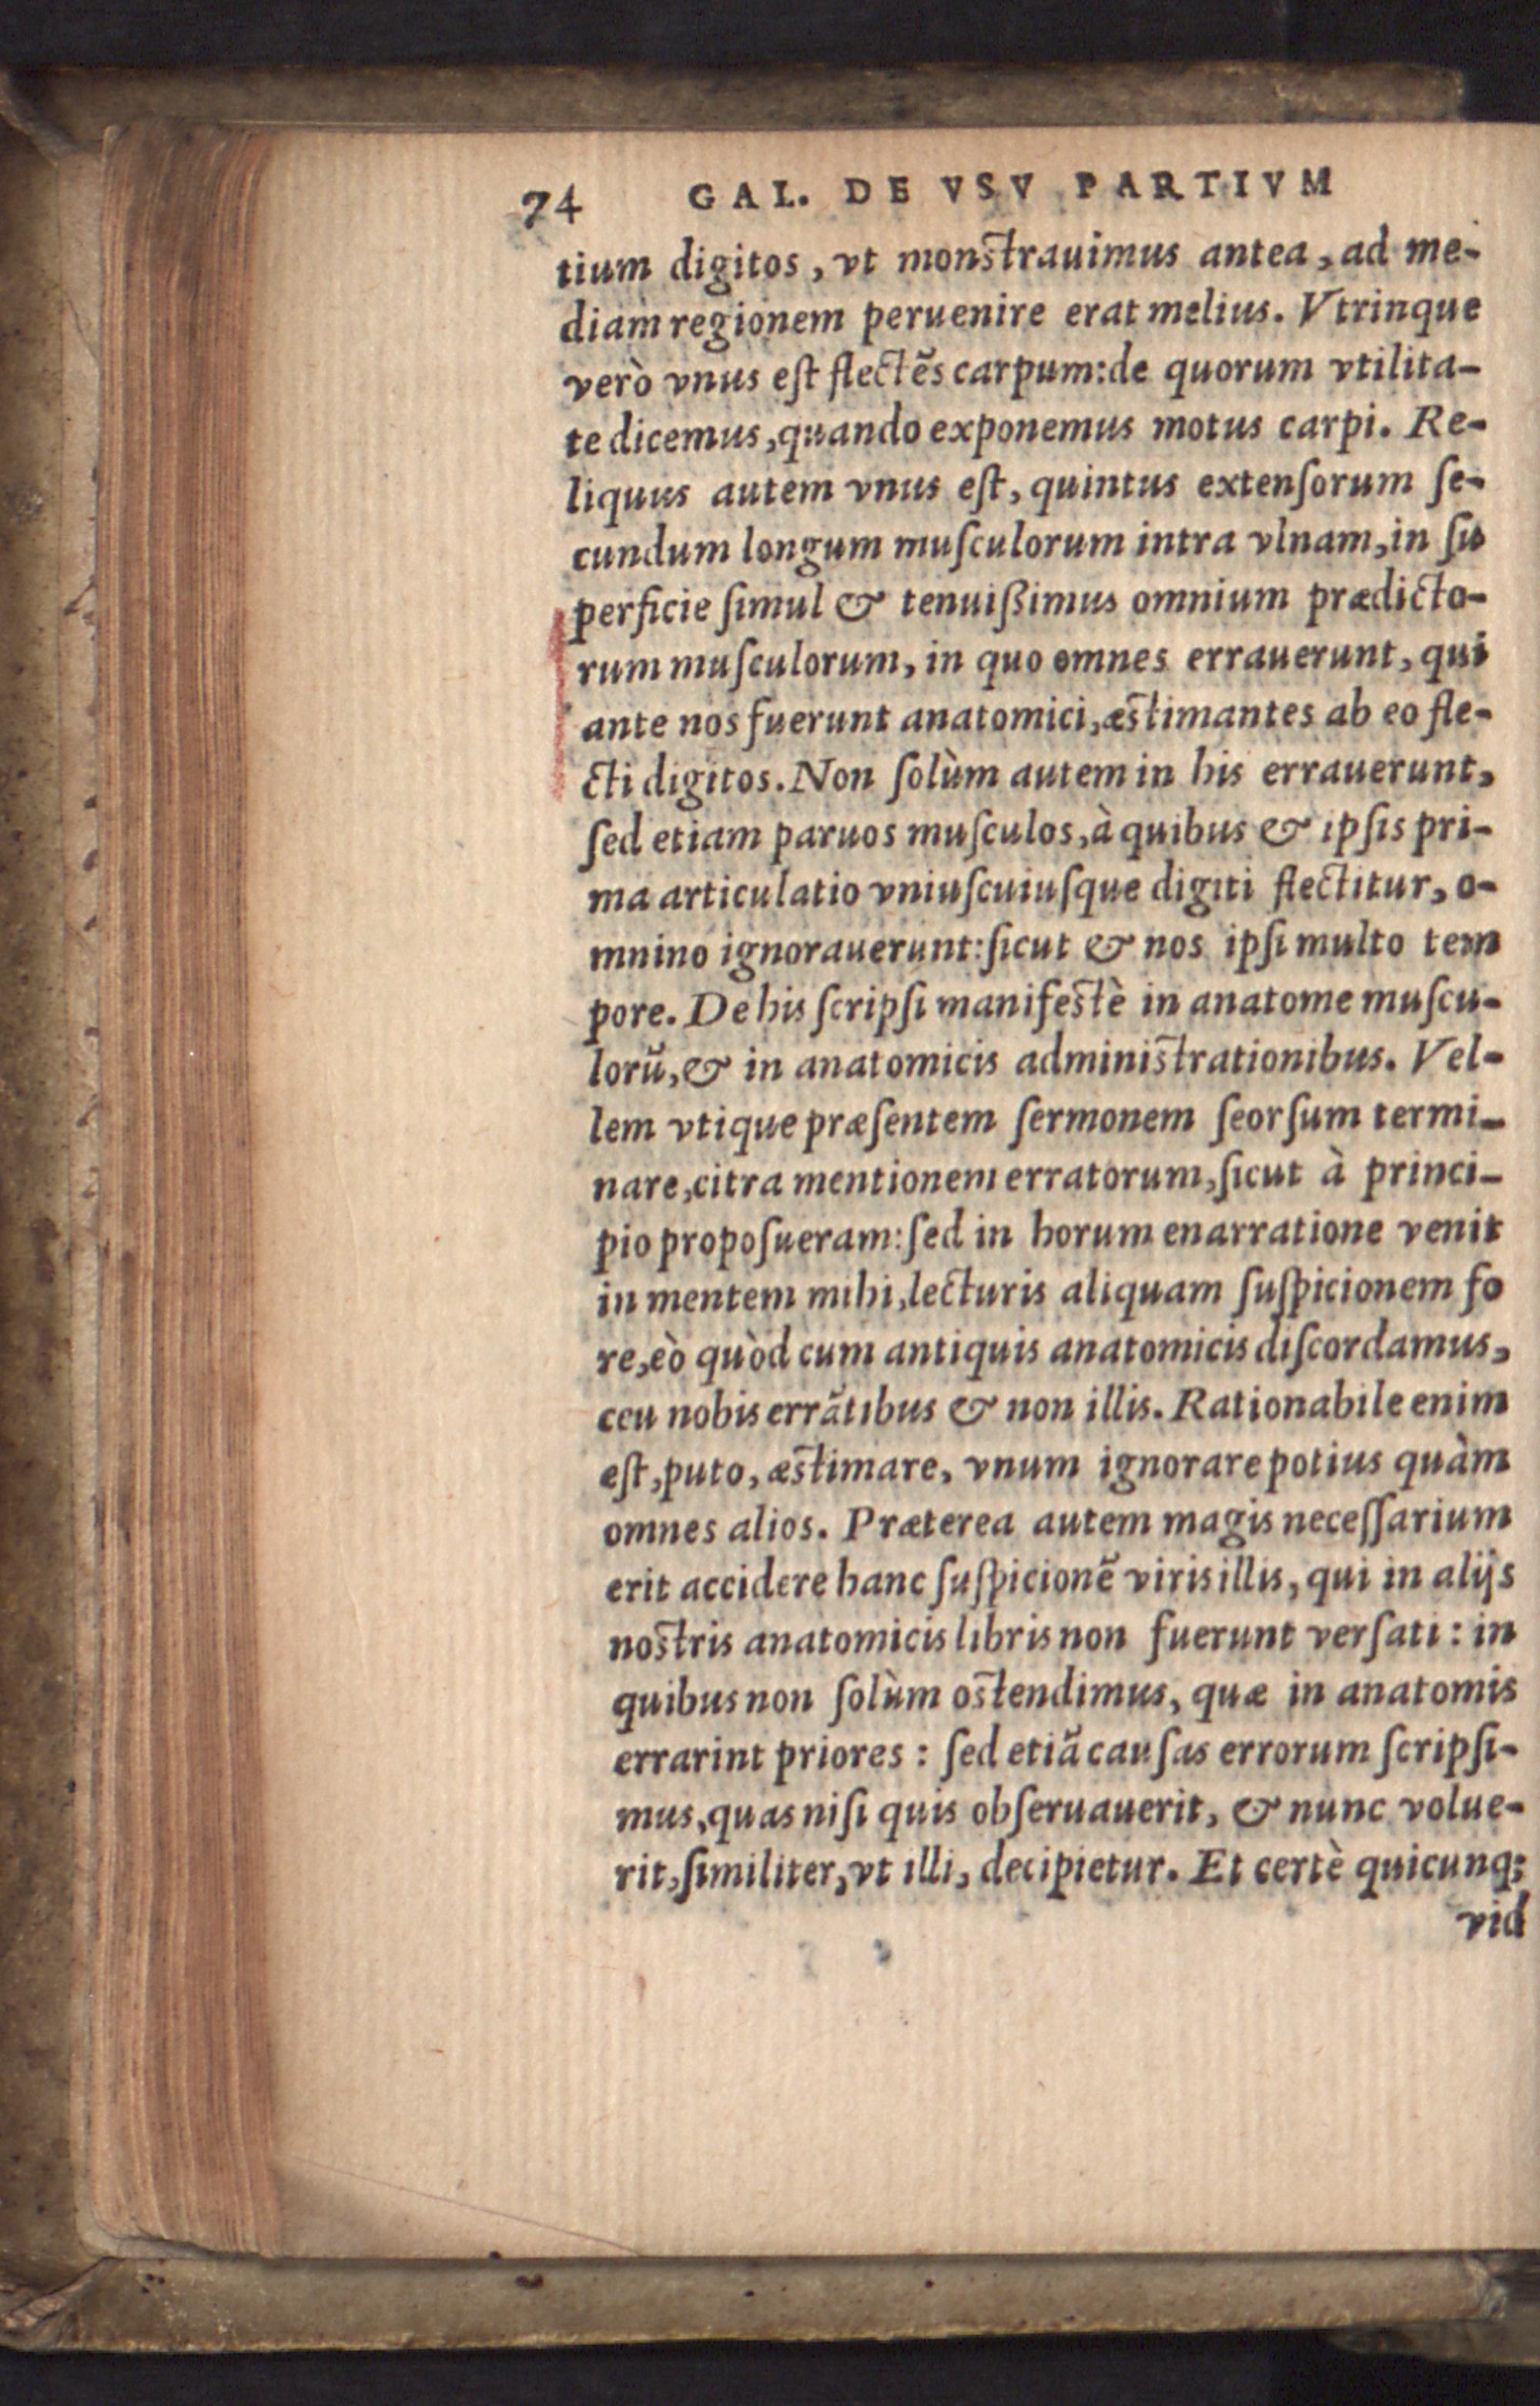 74 GAL. DE VSV PARTIVM
tium digitos, vt monſtrauimus antea, ad me-
diam regionem peruenire erat melius. Vtrinque
verò vnus eſt flectẽs carpum: de quorum vtilita-
te dicemus, quando exponemus motus carpi. Re-
liquus autem vnus eſt, quintus extenſorum ſe-
cundum longum muſculorum intra vlnam, in ſu
perficie ſimul & tenuißimus omnium prædicto-
rum muſculorum, in quo omnes errauerunt, qui
ante nos fuerunt anatomici, æſtimantes ab eo fle-
cti digitos. Non ſolùm autem in his errauerunt,
ſed etiam paruos muſculos, à quibus & ipſis pri-
ma articulatio vniuſcuiuſque digiti flectitur, o-
mnino ignorauerunt: ſicut & nos ipſi multo tem
pore. De his ſcripſi manifeſtè in anatome muſcu-
lorũ, & in anatomicis adminiſtrationibus. Vel-
lem vtique præſentem ſermonem ſeorſum termi-
nare, citra mentionem erratorum, ſicut à princi-
pio propoſueram: ſed in horum enarratione venit
in mentem mihi, lecturis aliquam ſuſpicionem fo
re, eò quòd cum antiquis anatomicis diſcordamus,
ceu nobis errãtibus & non illis. Rationabile enim
eſt, puto, æſtimare, vnum ignorare potius quàm
omnes alios. Præterea autem magis neceſſarium
erit accidere hanc ſuſpicionẽ viris illis, qui in alijs
noſtris anatomicis libris non fuerunt verſati: in
quibus non ſolùm oſtendimus, quæ in anatomis
errarint priores: ſed etiã cauſas errorum ſcripſi-
mus, quas niſi quis obſeruauerit, & nunc volue-
rit, ſimiliter, vt illi, decipietur. Et certè quicunq;
vid